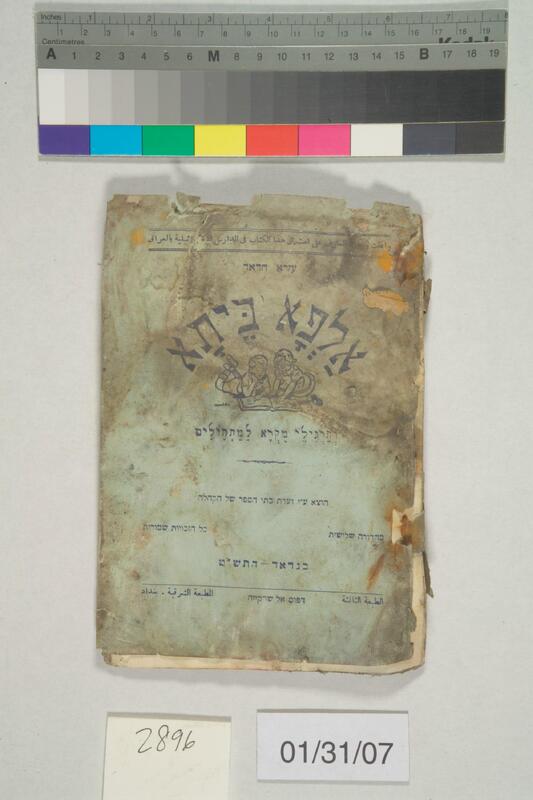 Inches 1 2 3 4 5 6 7 8
1 2 3 4 5 6 7 8 9 10 11 12 13 14 15 16 17 18 19
Centimetres
A 1 2 3 4 5 6 M 8 9 10 11 12 13 14 15 B 17 18 19
على استعمال هذا الكتاب في المدارس
עזרא חדאד
אַלְפָא בֵּיתָא
וְתַרְגִּילֵי מִקְרָא לַמַּתְחִילִים
הוצא ע״י ועדת בתי הספר של הקהלה
מהדורה שלישית כל הזכויות שמורות
בגדאד — התש״ט
الطبعة الثالثة דפוס אל שרקייה المطبعة الشرقية - بغداد
2896
01/31/07